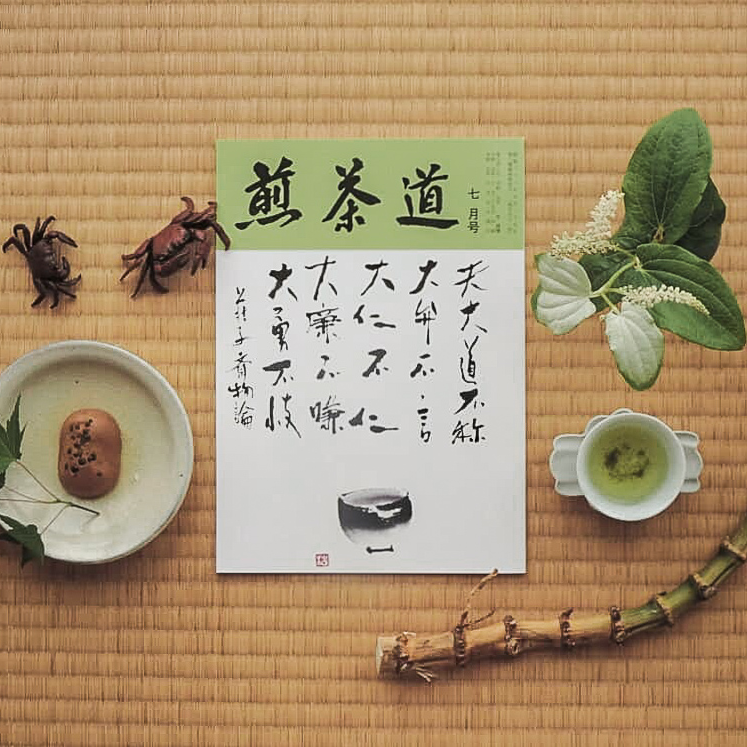 煎茶道
七月号
夫大道不称
大弁不言
大仁不仁
大廉不嗛
大勇不忮
荘子斉物論